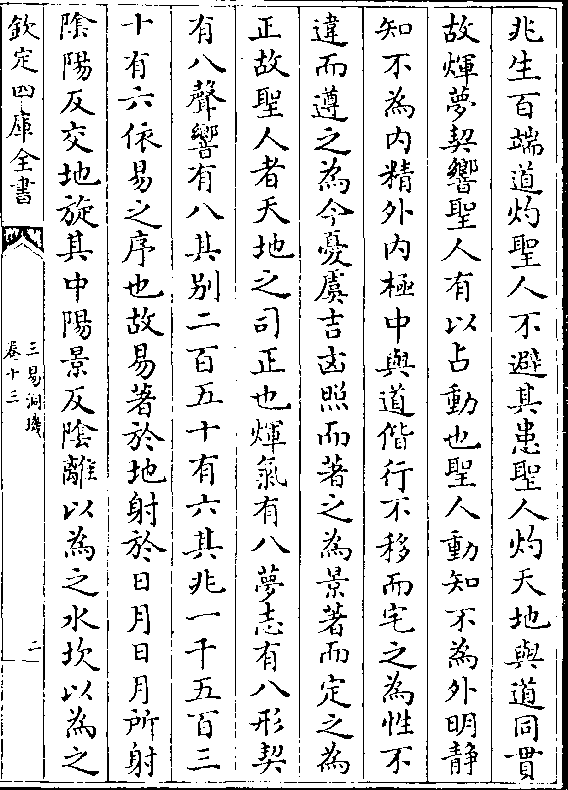 兆生百端道灼聖人不避其患聖人灼天地與道同貫
故煇夢契響聖人有以占動也聖人動知不為外明静
知不為内精外内極中與道偕行不移而宅之為性不
違而遵之為今憂虞吉凶照而著之為景著而定之為
正故聖人者天地之司正也煇氣有八夢志有八形契
有八聲響有八其别二百五十有六其兆一千五百三
十有六依易之序也故易著於地射於日月日月所射
隂陽反交地旋其中陽景反隂離以為之水坎以為之
欽定四庫全書
三易洞璣
卷十三
二